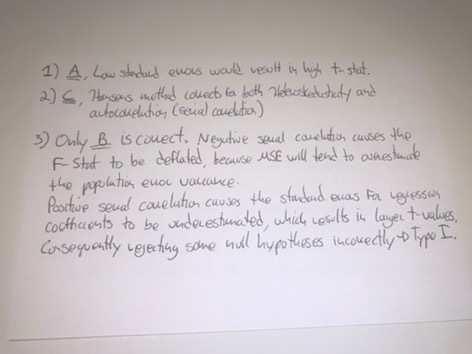 1) A, Low standard errors would result in high t-stat.
2) C, Hansens method corrects for both Heteroskedasticity and
autocorrelation (serial correlation)
3) Only B is correct. Negative serial correlation causes the
F-stat to be deflated, because MSE will tend to overestimate
the population error variance.
Positive serial correlation causes the standard errors for regression
coefficients to be underestimated, which results in larger t-values.
Consequently rejecting some null hypotheses incorrectly → Type I.